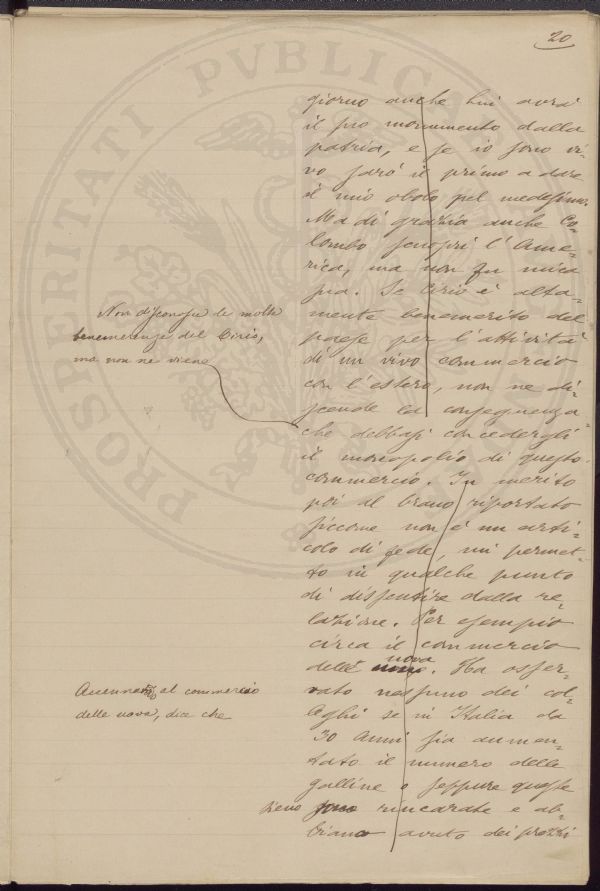 20
giorno anche lui avrà
il suo monumento dalla
patria, e se io sono vi=
vo sarò il primo a dare
il mio obolo pel medesimo.
Ma di grazia anche Co=
lombo scoprì l'Ame=
rica, ma non fu mica
sua. Se Cirio è alta=
mente benemerito del
paese per l'attività
di un vivo commercio
con l'estero, non ne di=
scende la conseguenza
che debbasi concedergli
il monopolio di questo
commercio. In merito
poi al brano riportato
siccome non è un arti=
colo di fede, mi permet=
to in qualche punto
di dissentire dalla re=
lazione. Per esempio
circa il commercio
delle uova. Ha osser=
vato nessuno dei col=
leghi se in Italia da
30 anni sia aumen=
tato il numero delle
galline o seppure queste
sieno sono rincarate e ab=
biano avuto dei prezzi
Non disconosce le molte
benemerenze del Cirio,
ma non ne viene
Accennando al commercio
delle uova, dice che
PROSPERITATI PVBLICA